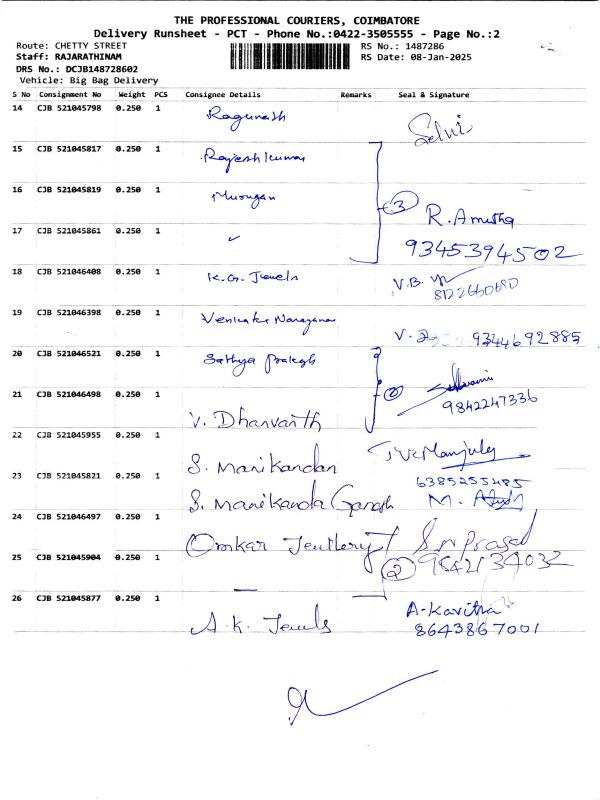 THE PROFESSIONAL COURIERS, COIMBATORE
Delivery Runsheet - PCT - Phone No.:0422-3505555 - Page No.:2
Route: CHETTY STREET RS No.: 1487286
Staff: RAJARATHINAM RS Date: 08-Jan-2025
DRS No.: DCJB148728602
Vehicle: Big Bag Delivery
S No Consignment No Weight PCS Consignee Details Remarks Seal & Signature
14 CJB 521045798 0.250 1 Ragunath Selvi
15 CJB 521045817 0.250 1 Rajesh kumar
16 CJB 521045819 0.250 1 Murugan 3 R. Amutha
17 CJB 521045861 0.250 1 9345394502
18 CJB 521046408 0.250 1 K.G. Jewels V.B.
8122660680
19 CJB 521046398 0.250 1 Venkata Narayanan V. 9344692885
20 CJB 521046521 0.250 1 Sathya Prakash
21 CJB 521046498 0.250 1 V. Dhanvanth 2 9842247336
22 CJB 521045955 0.250 1 S. Manikandan
23 CJB 521045821 0.250 1 S. Manikanda Ganesh 6385255485
M.
24 CJB 521046497 0.250 1 Omkar Jewllery S M Prasad
25 CJB 521045904 0.250 1 — 2 9842134032
26 CJB 521045877 0.250 1 A.K. Jewels A-Kavitha
8643867001